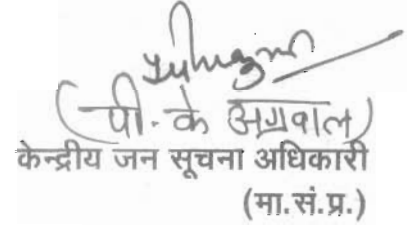 (पी. के अग्रवाल)
केन्द्रीय जन सूचना अधिकारी
(मा.सं.प्र.)